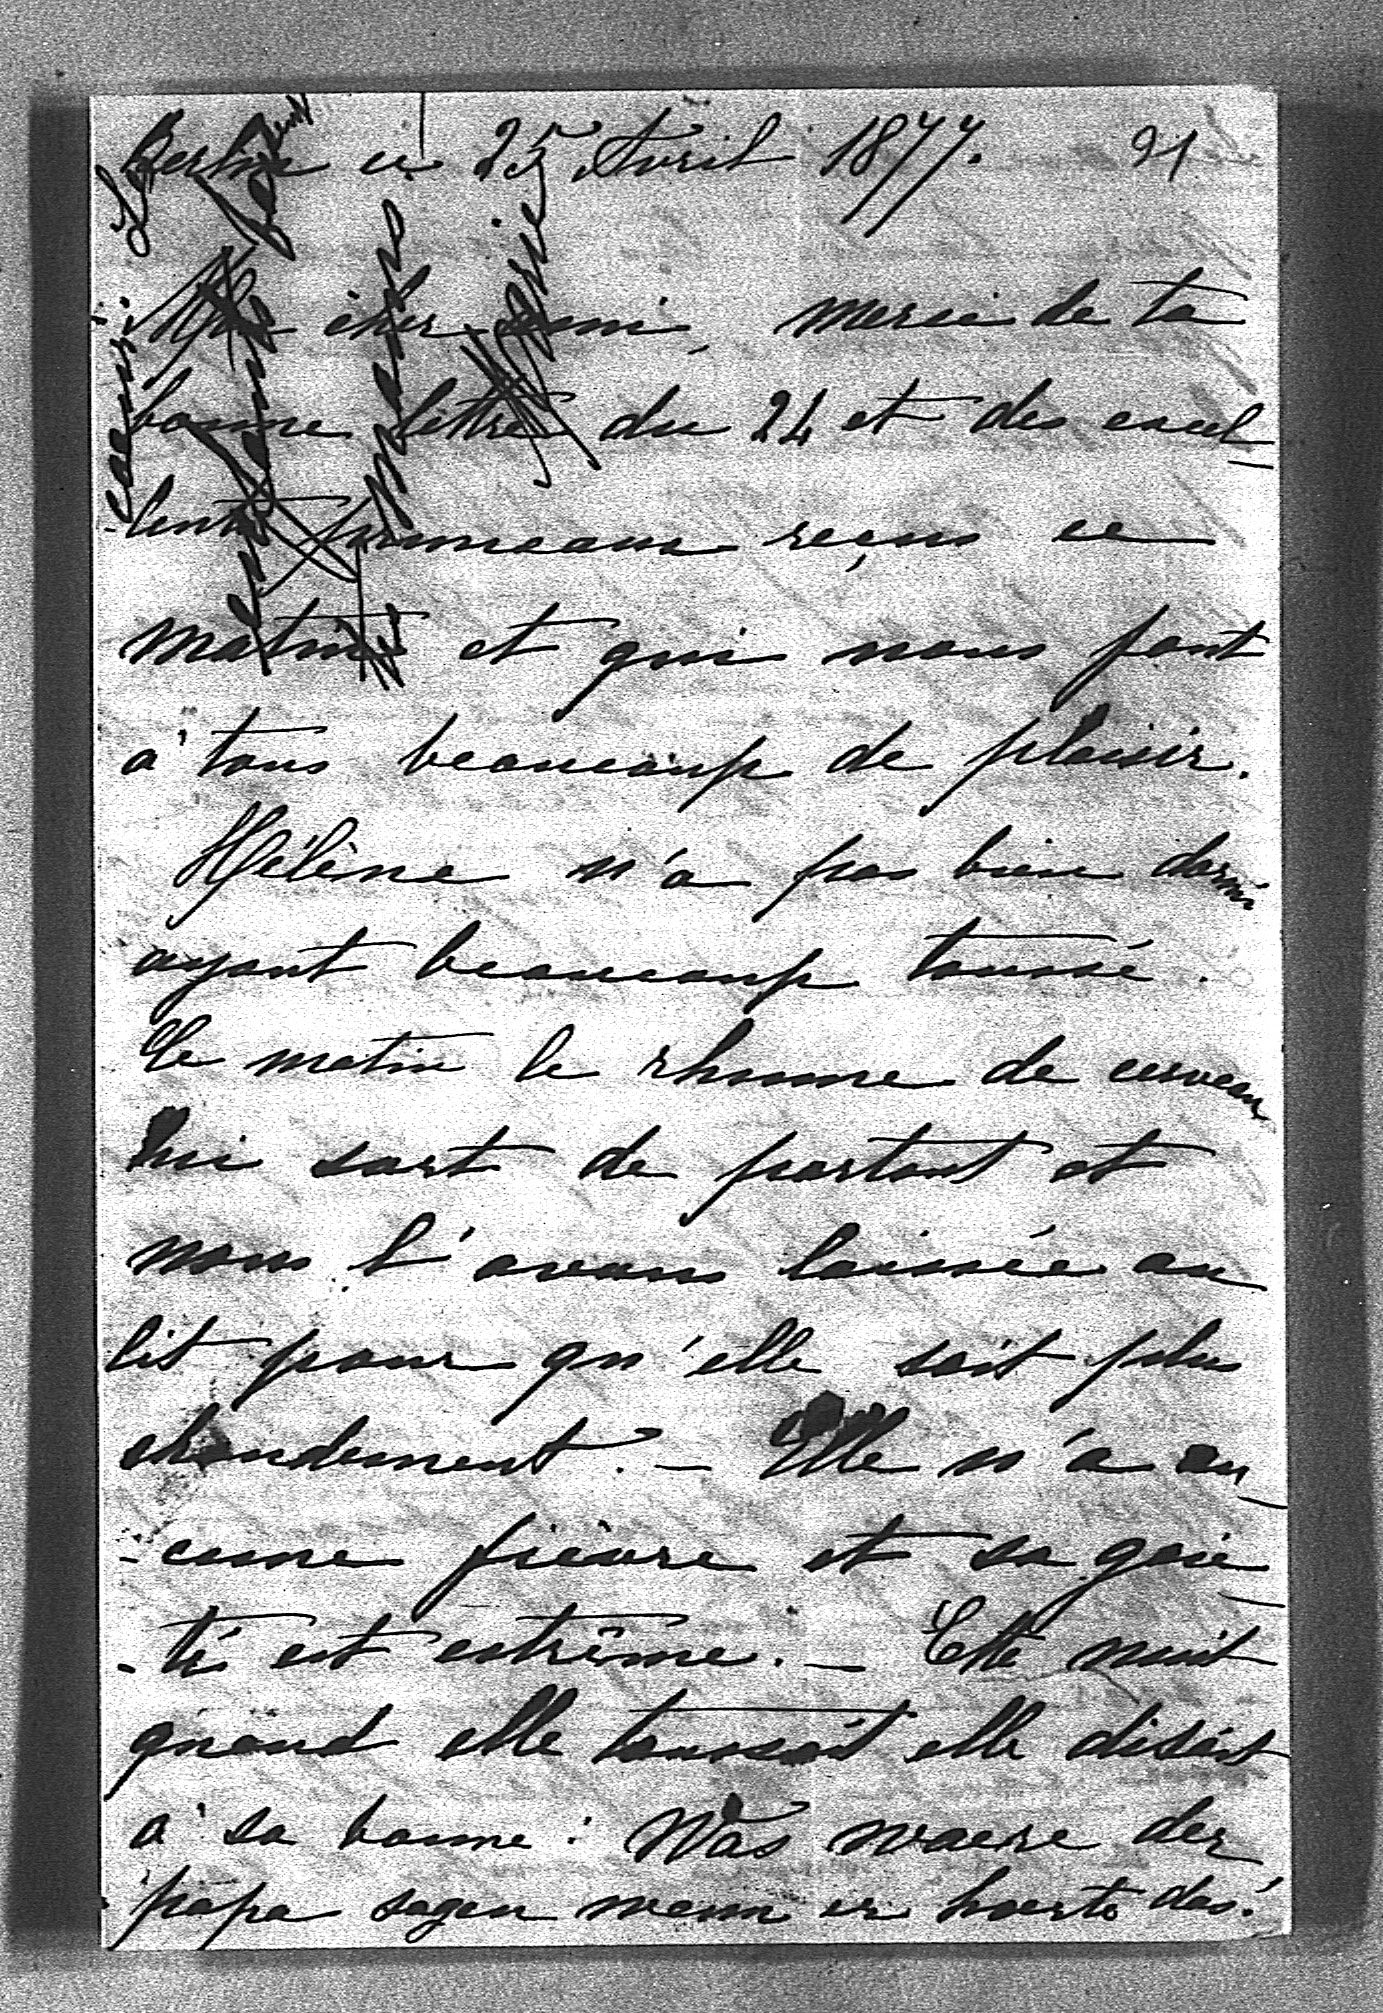 Berlin ce 25 Avril 1877. 91
Mon cher ami, merci de ta
bonne lettre du 24 et des excel
lents pruneaux reçus ce
matin et qui nous font
à tous beaucoup de plaisir.
Hélène n'a pas bien dormi
ayant beaucoup toussé.
Ce matin le rhume de cerveau
lui sort de partout et
nous l'avons laissée au
lit pour qu'elle soit plus
chaudement. — Elle n'a au
-cune fièvre et sa gaie
-té est extrême. — Cette nuit
quand elle toussait elle disait
à sa bonne: Was waere der
papa sagen wenn er hoerte das!
Marie